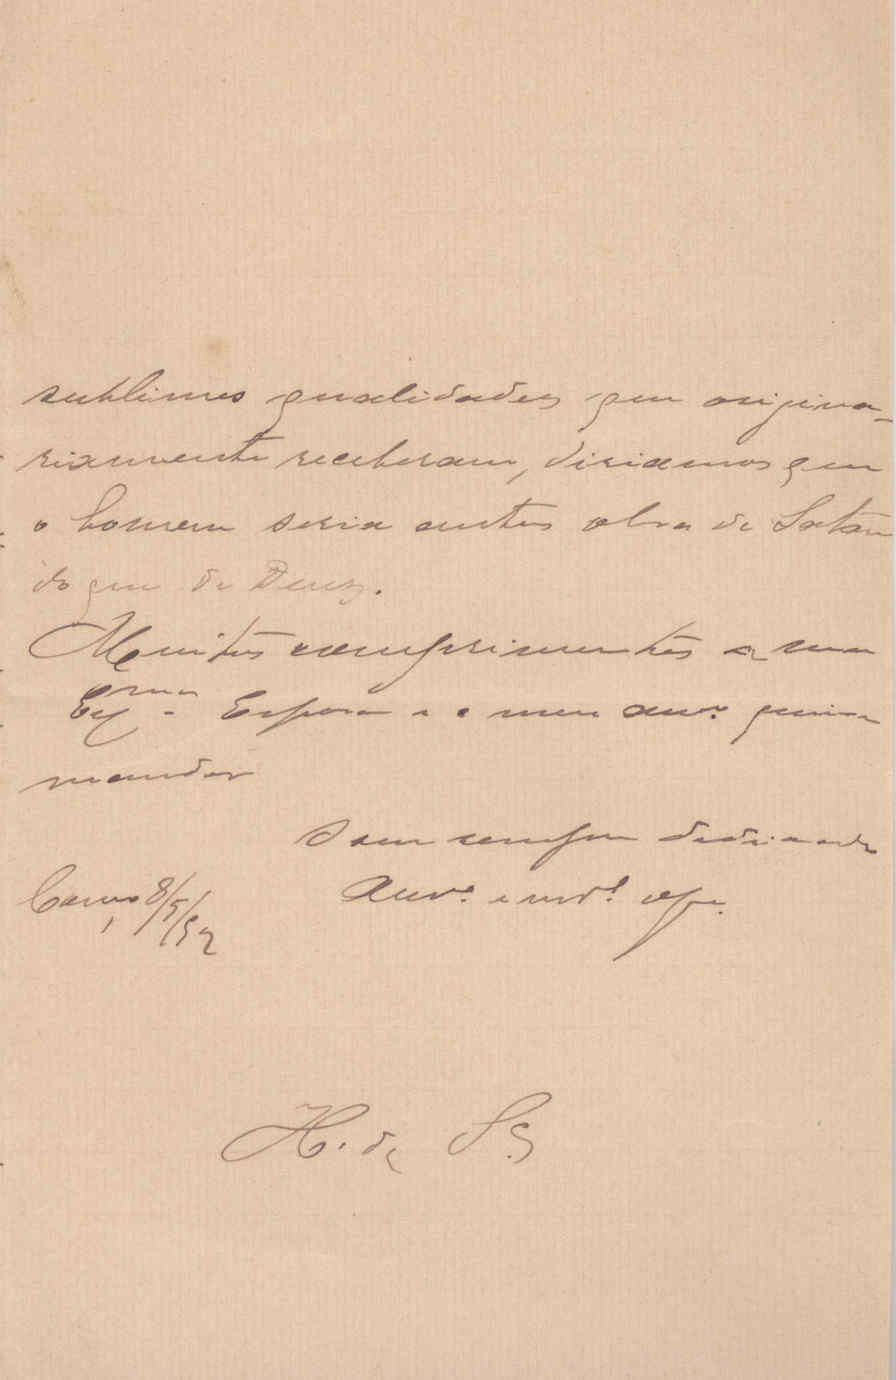 sublimes qualidades que origina-
riamente receberam, diriamos que
o homem seria antes obra de Satan
do que de Deus.
Muitos cumprimentos a sua
Exma. Esposa e o meu amo. queira
mandar
Sou sempre dedicado
Amo. e
8/5/92
H. de S.